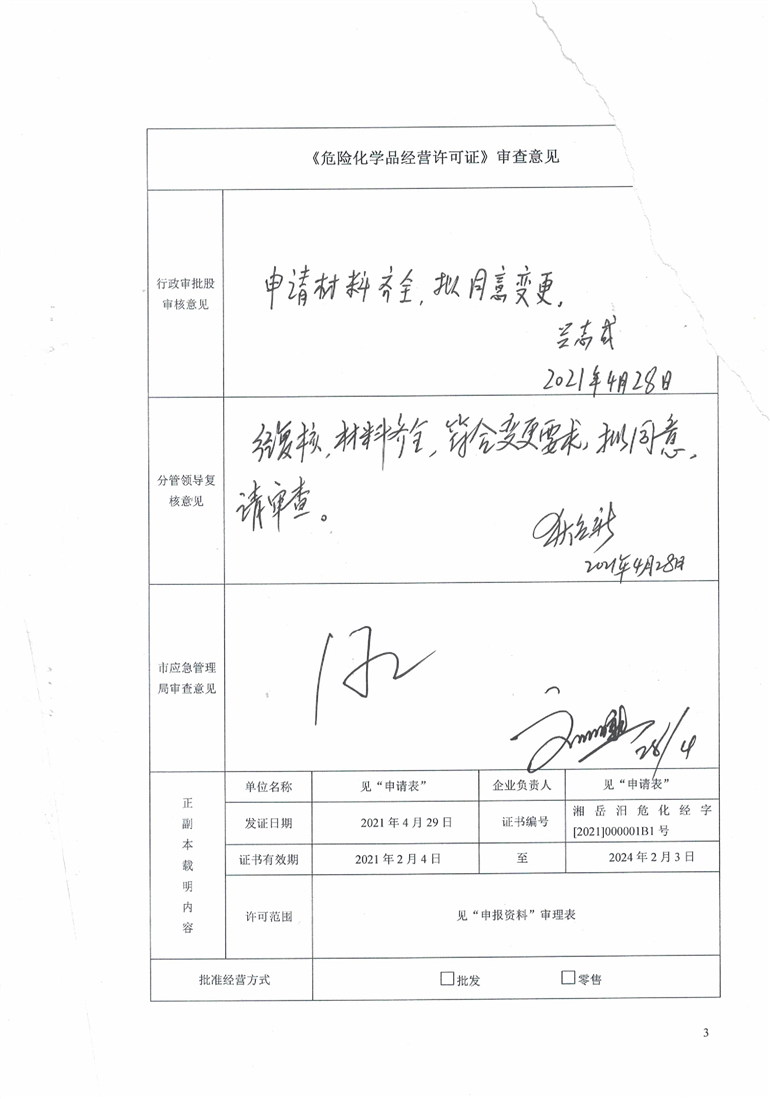 《危险化学品经营许可证》审查意见
行政审批股
审核意见
申请材料齐全,拟同意变更。
2021年4月28日
分管领导复
核意见
经复核,材料齐全,符合变更要求,拟同意,
请审查。
2021年4月28日
市应急管理
局审查意见
28/4
正副本载明内容
单位名称 见“申请表” 企业负责人 见“申请表”
发证日期 2021年4月29日 证书编号 湘岳汨危化经字
[2021]000001B1号
证书有效期 2021年2月4日 至 2024年2月3日
许可范围 见“申报资料”审理表
批准经营方式 □批发 □零售
3